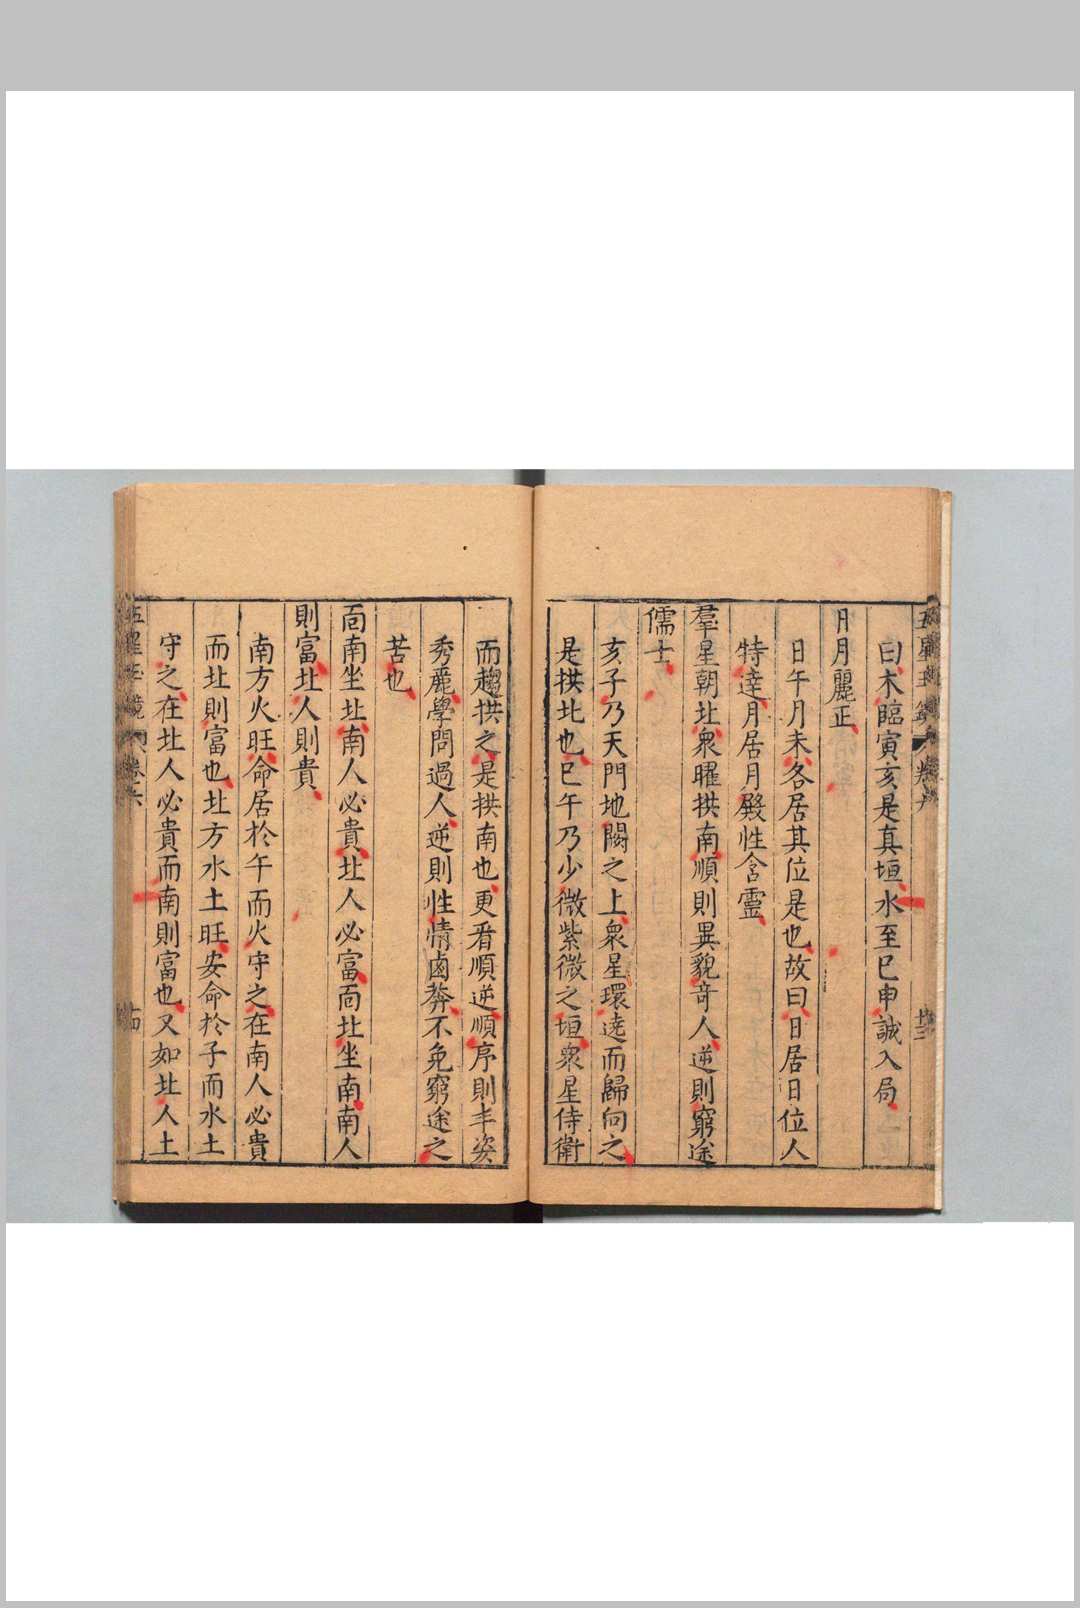 曰木臨寅亥是真垣水至巳申誠入局
月月麗正
日午月未各居其位是也故曰日居日位人
特達月居月殿性含靈
羣星朝北衆曜拱南順則異貌奇人逆則窮途
儒士
亥子乃天門地闕之上衆星環遶而歸向之
是拱北也巳午乃少微紫微之垣衆星侍衛
而趨拱之是拱南也更看順逆順序則丰姿
秀麗學問過人逆則性情鹵莽不免窮途之
苦也
面南坐北南人必貴北人必富面北坐南南人
則富北人則貴
南方火旺命居於午而火守之在南人必貴
而北則富也北方水土旺安命於子而水土
守之在北人必貴而南則富也又如北人土
卷六
十四